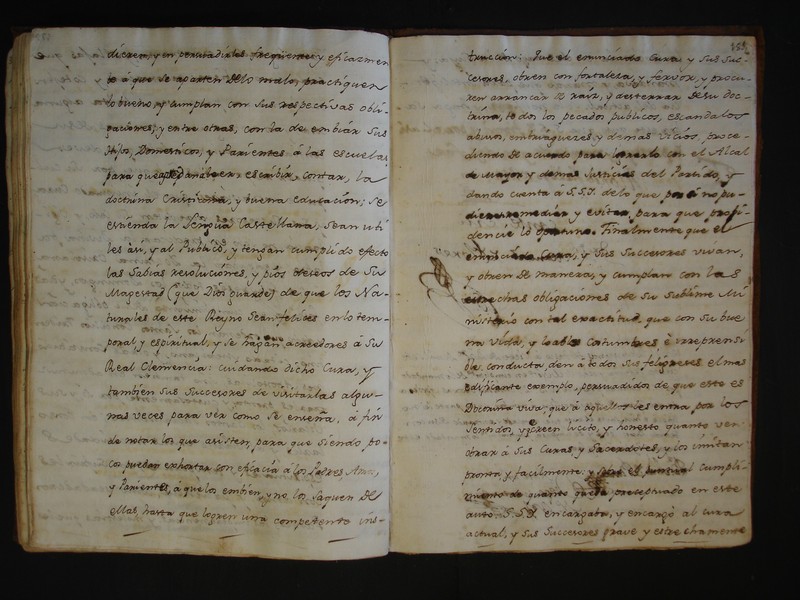 dieren, y en persuadirles freqüente y eficazmen
te á que se aparten de lo malo, practiquen
lo bueno, y cumplan con sus respectivas obli-
gaciones, y entre otras, con la de embiar sus
Hijos, Domesticos, y Parientes á las escuelas
para que aprendan leer, escribir, contar, la
doctrina Cristiana, y buena educacion; se
estienda la Lengua Castellana, sean uti
les asi, y al Publico, y tengan cumplido efecto
las Sabias resoluciones, y pios deseos de Su
Magestad (que Dios guarde) de que los Na-
turales de este Reyno sean felices en lo tem-
poral y espiritual, y se hagan acreedores á Su
Real Clemencia: cuidando dicho Cura, y
tambien sus Succesores de visitarlas algu-
nas veces para ver como se enseña, á fin
de notar los que asisten, para que siendo po-
cos puedan exhortar con eficacia á los Padres, Amos,
y Parientes, á que los embien, y no los saquen de
ellas, hasta que logren una competente ins-
153
truccion: Que el enunciado Cura y sus Suc-
cesores, obren con fortaleza, y fervor, y procu-
ren arrancar de raiz, y desterrar de su doc-
trina, todos los pecados publicos, escandalos
abusos, embriagueces y demas vicios, proce-
diendo de acuerdo para lograrlo con el Alcal
de Mayor y demas Justicias del Partido, y
dando cuenta á S.S.I. de lo que por si no pu-
dieren remediar y evitar, para que provi-
dencie lo oportuno. Finalmente que el
enunciado Cura, y sus Succesores vivan,
y obren de manera, y cumplan con las
estrechas obligaciones de su sublime Mi
nisterio con tal exactitud, que con su bue
na vida, y loables costumbres é irreprensi
ble conducta den á todos sus feligreses el mas
edificante exemplo, persuadidos de que este es
Doctrina viva, que á aquellos les entra por los
sentidos, y creen licito, y honesto quanto ven
obrar á sus Curas, y Sacerdotes, y los imitan
pronta, y facilmente: y para el puntual cumpli-
miento de quanto queda preceptuado en este
auto S.S.I. encargaba, y encargó al cura
actual, y sus Succesores grave y estrechamente